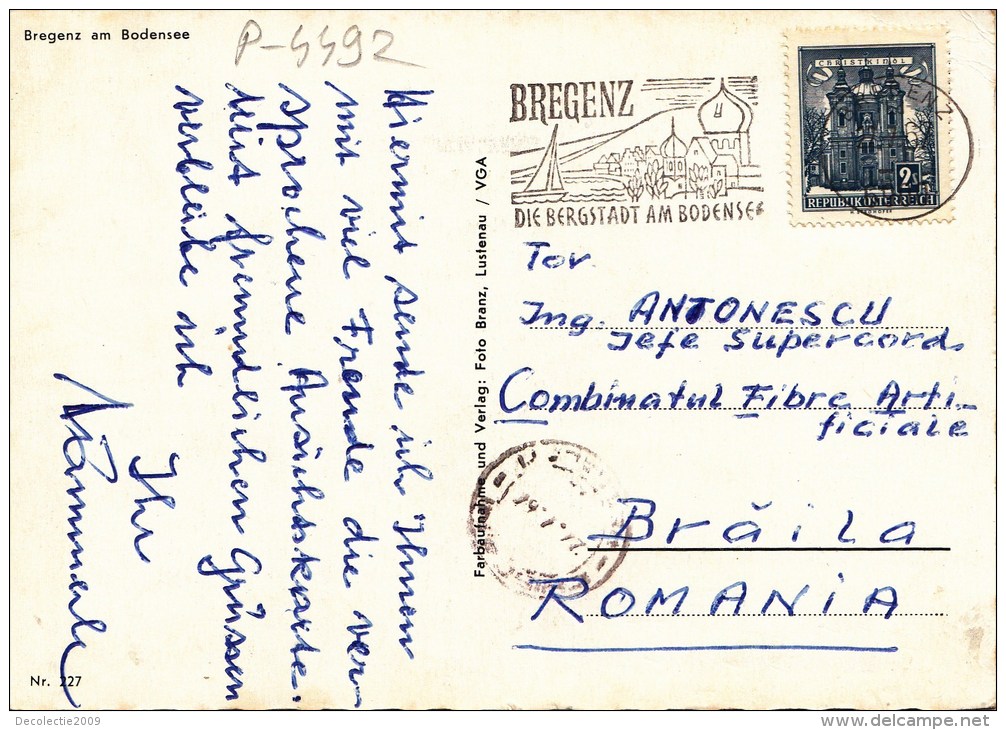 Bregenz am Bodensee
P-4492
Hiermit sende ich Ihnen
mit viel Freude die ver-
sprochene Ansichtskarte.
Mit freundlichen Grüssen
verbleibe ich
Ihr
Nr. 227
Farbaufnahme und Verlag: Foto Branz, Lustenau / VGA
BREGENZ
DIE BERGSTADT AM BODENSEE
CHRISTKINDL
2s
REPUBLIK ÖSTERREICH
Tov.
Ing. ANTONESCU
Jefe Supercord
Combinatul Fibre Arti-
ficiale
Brăila
ROMANIA
Decolectie2009
www.delcampe.net